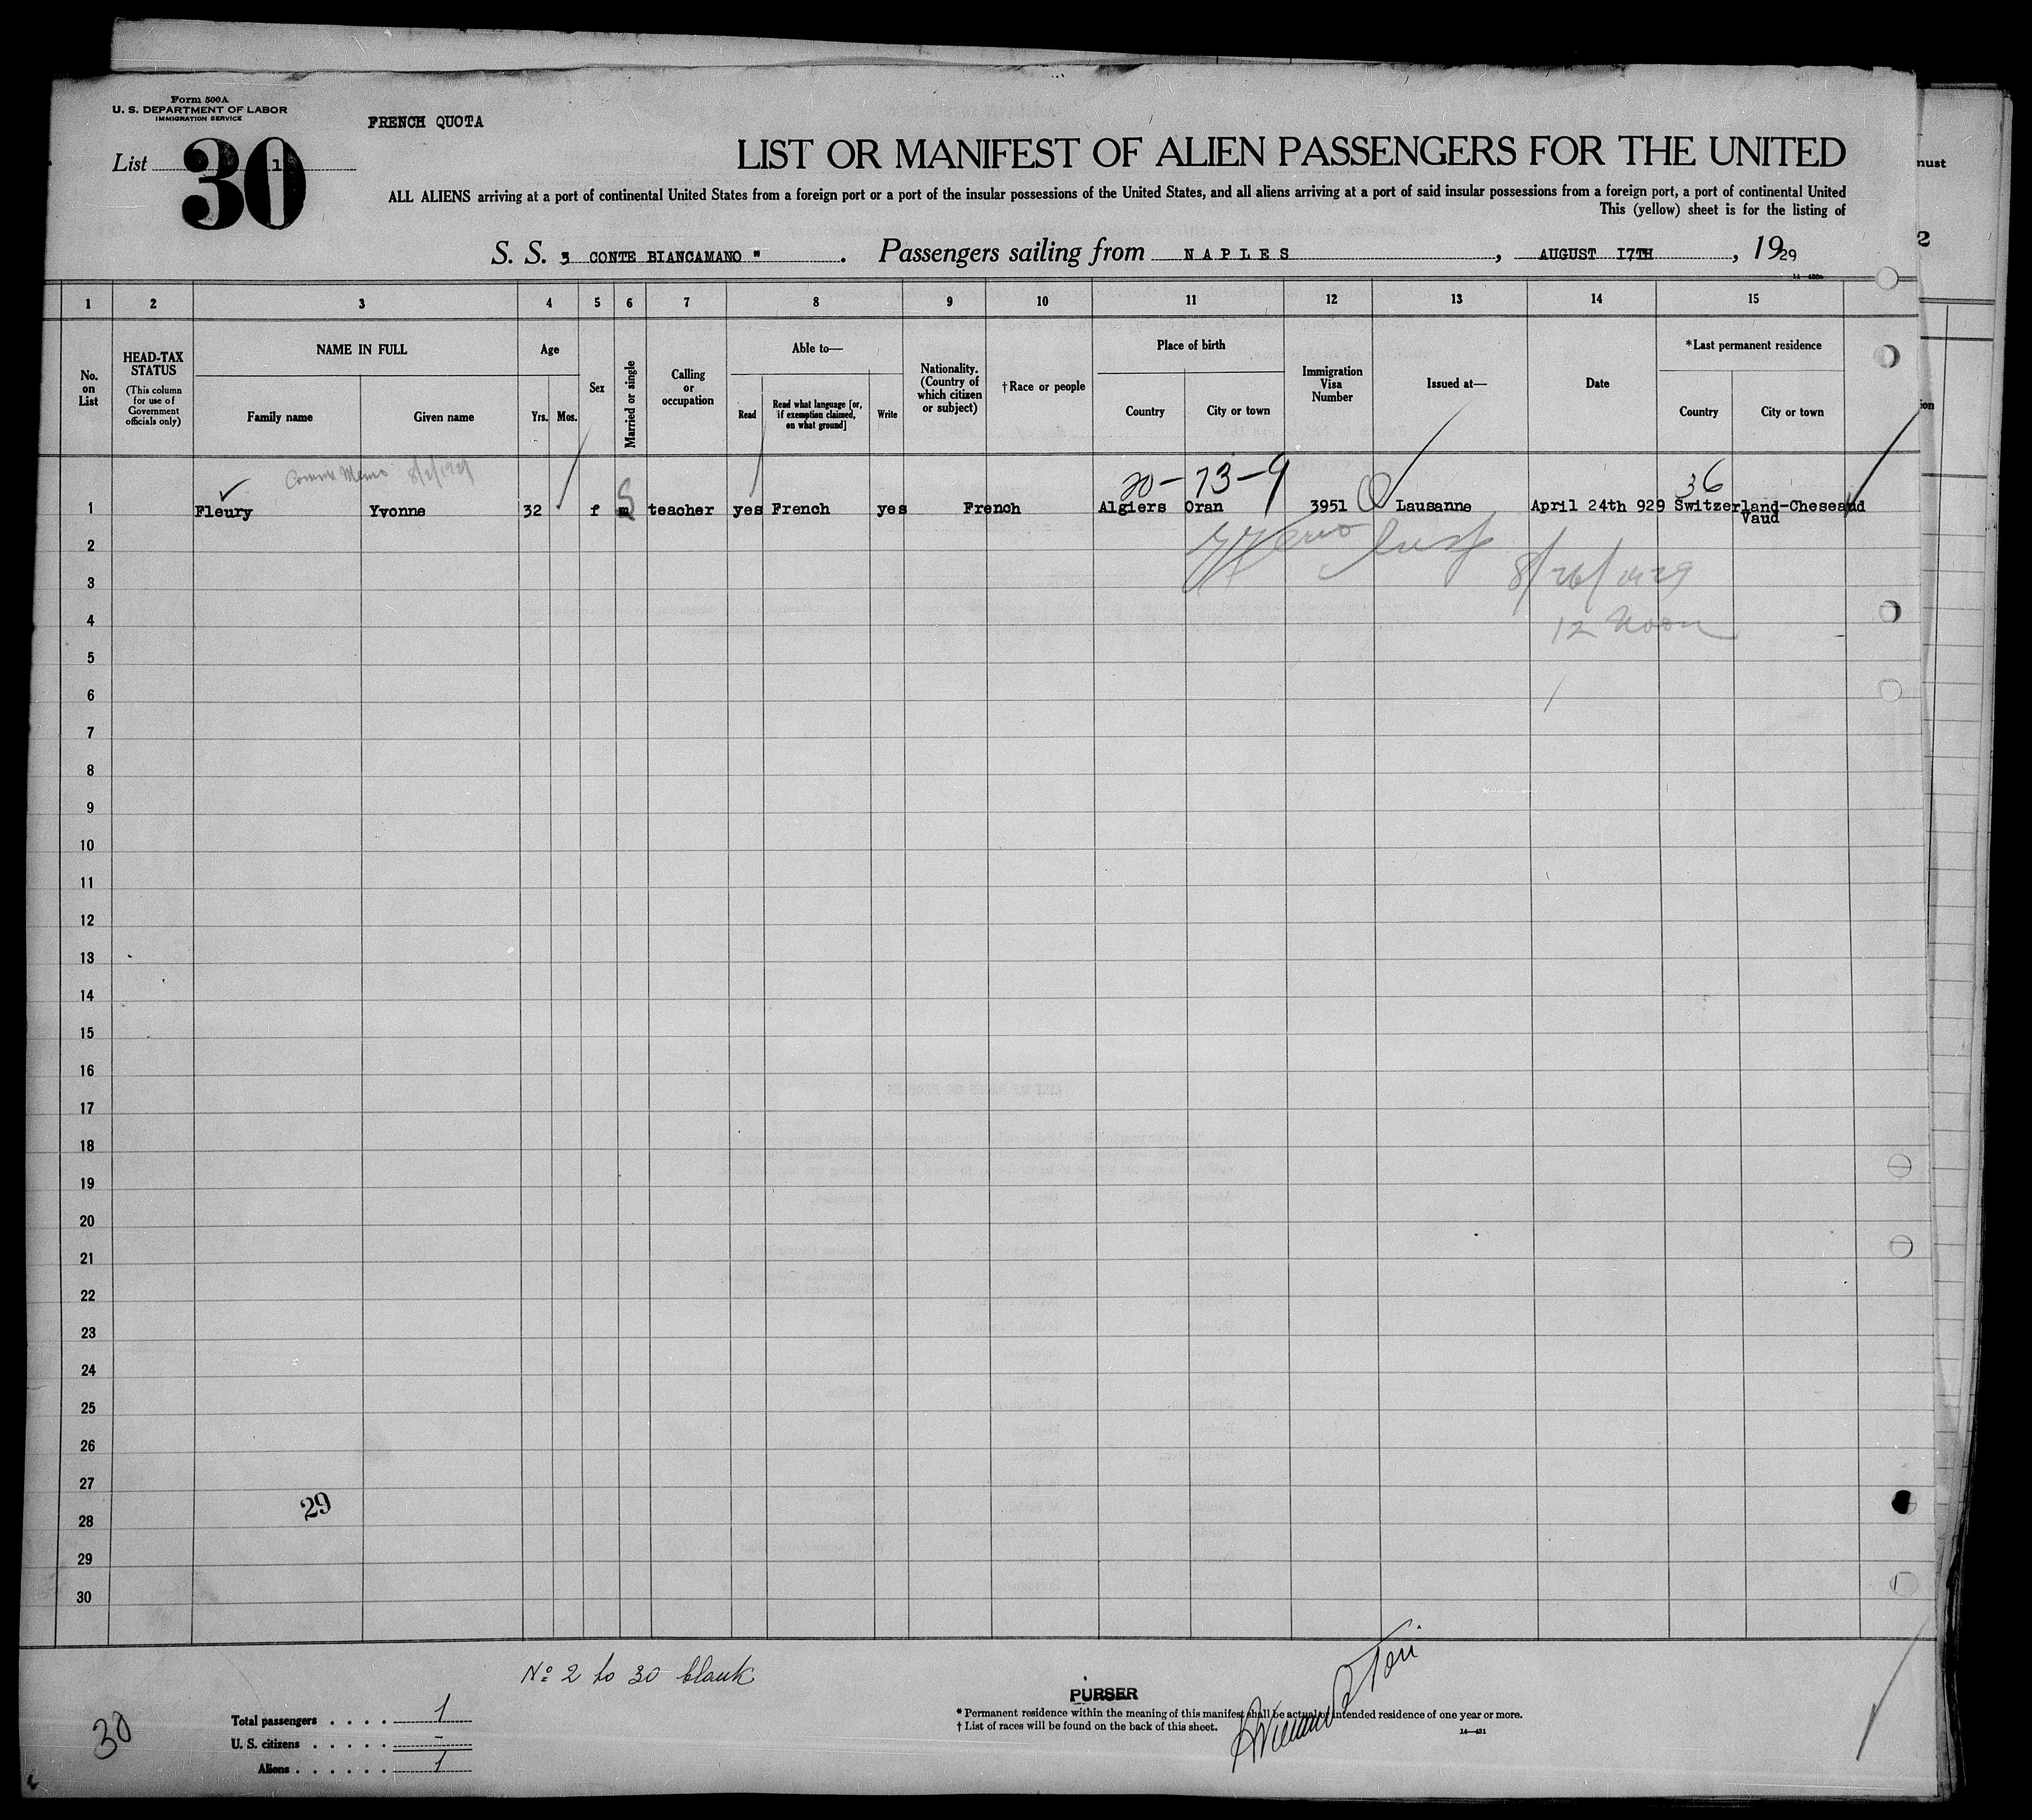 Form 500A
U. S. DEPARTMENT OF LABOR
IMMIGRATION SERVICE
FRENCH QUOTA
List 1
30
LIST OR MANIFEST OF ALIEN PASSENGERS FOR THE UNITED
ALL ALIENS arriving at a port of continental United States from a foreign port or a port of the insular possessions of the United States, and all aliens arriving at a port of said insular possessions from a foreign port, a port of continental United
This (yellow) sheet is for the listing of
S. S. CONTE BIANCAMANO ". Passengers sailing from NAPLES, AUGUST 17TH, 1929
1 2 3 4 5 6 7 8 9 10 11 12 13 14 15
No. on List
HEAD-TAX STATUS
(This column for use of Government officials only)
NAME IN FULL
Family name Given name
Age
Yrs. Mos.
Sex
Married or single
Calling or occupation
Able to—
Read Read what language [or, if exemption claimed, on what ground] Write
Nationality. (Country of which citizen or subject)
†Race or people
Place of birth
Country City or town
Immigration Visa Number
Issued at—
Date
*Last permanent residence
Country City or town
8/2/1929
20-73-9 36
1 Fleury Yvonne 32 f m S teacher yes French yes French Algiers Oran 3951 Lausanne April 24th 929 Switzerland-Cheseaud
Vaud
2
8/26/1929
3
4
12 Noon
5
6
7
8
9
10
11
12
13
14
15
16
17
18
19
20
21
22
23
24
25
26
27
29
28
29
30
No 2 to 30 blank
30
Total passengers . . . . 1
U. S. citizens . . . . . -
Aliens . . . . . . 1
PURSER
* Permanent residence within the meaning of this manifest shall be actual or intended residence of one year or more.
† List of races will be found on the back of this sheet.
14—431